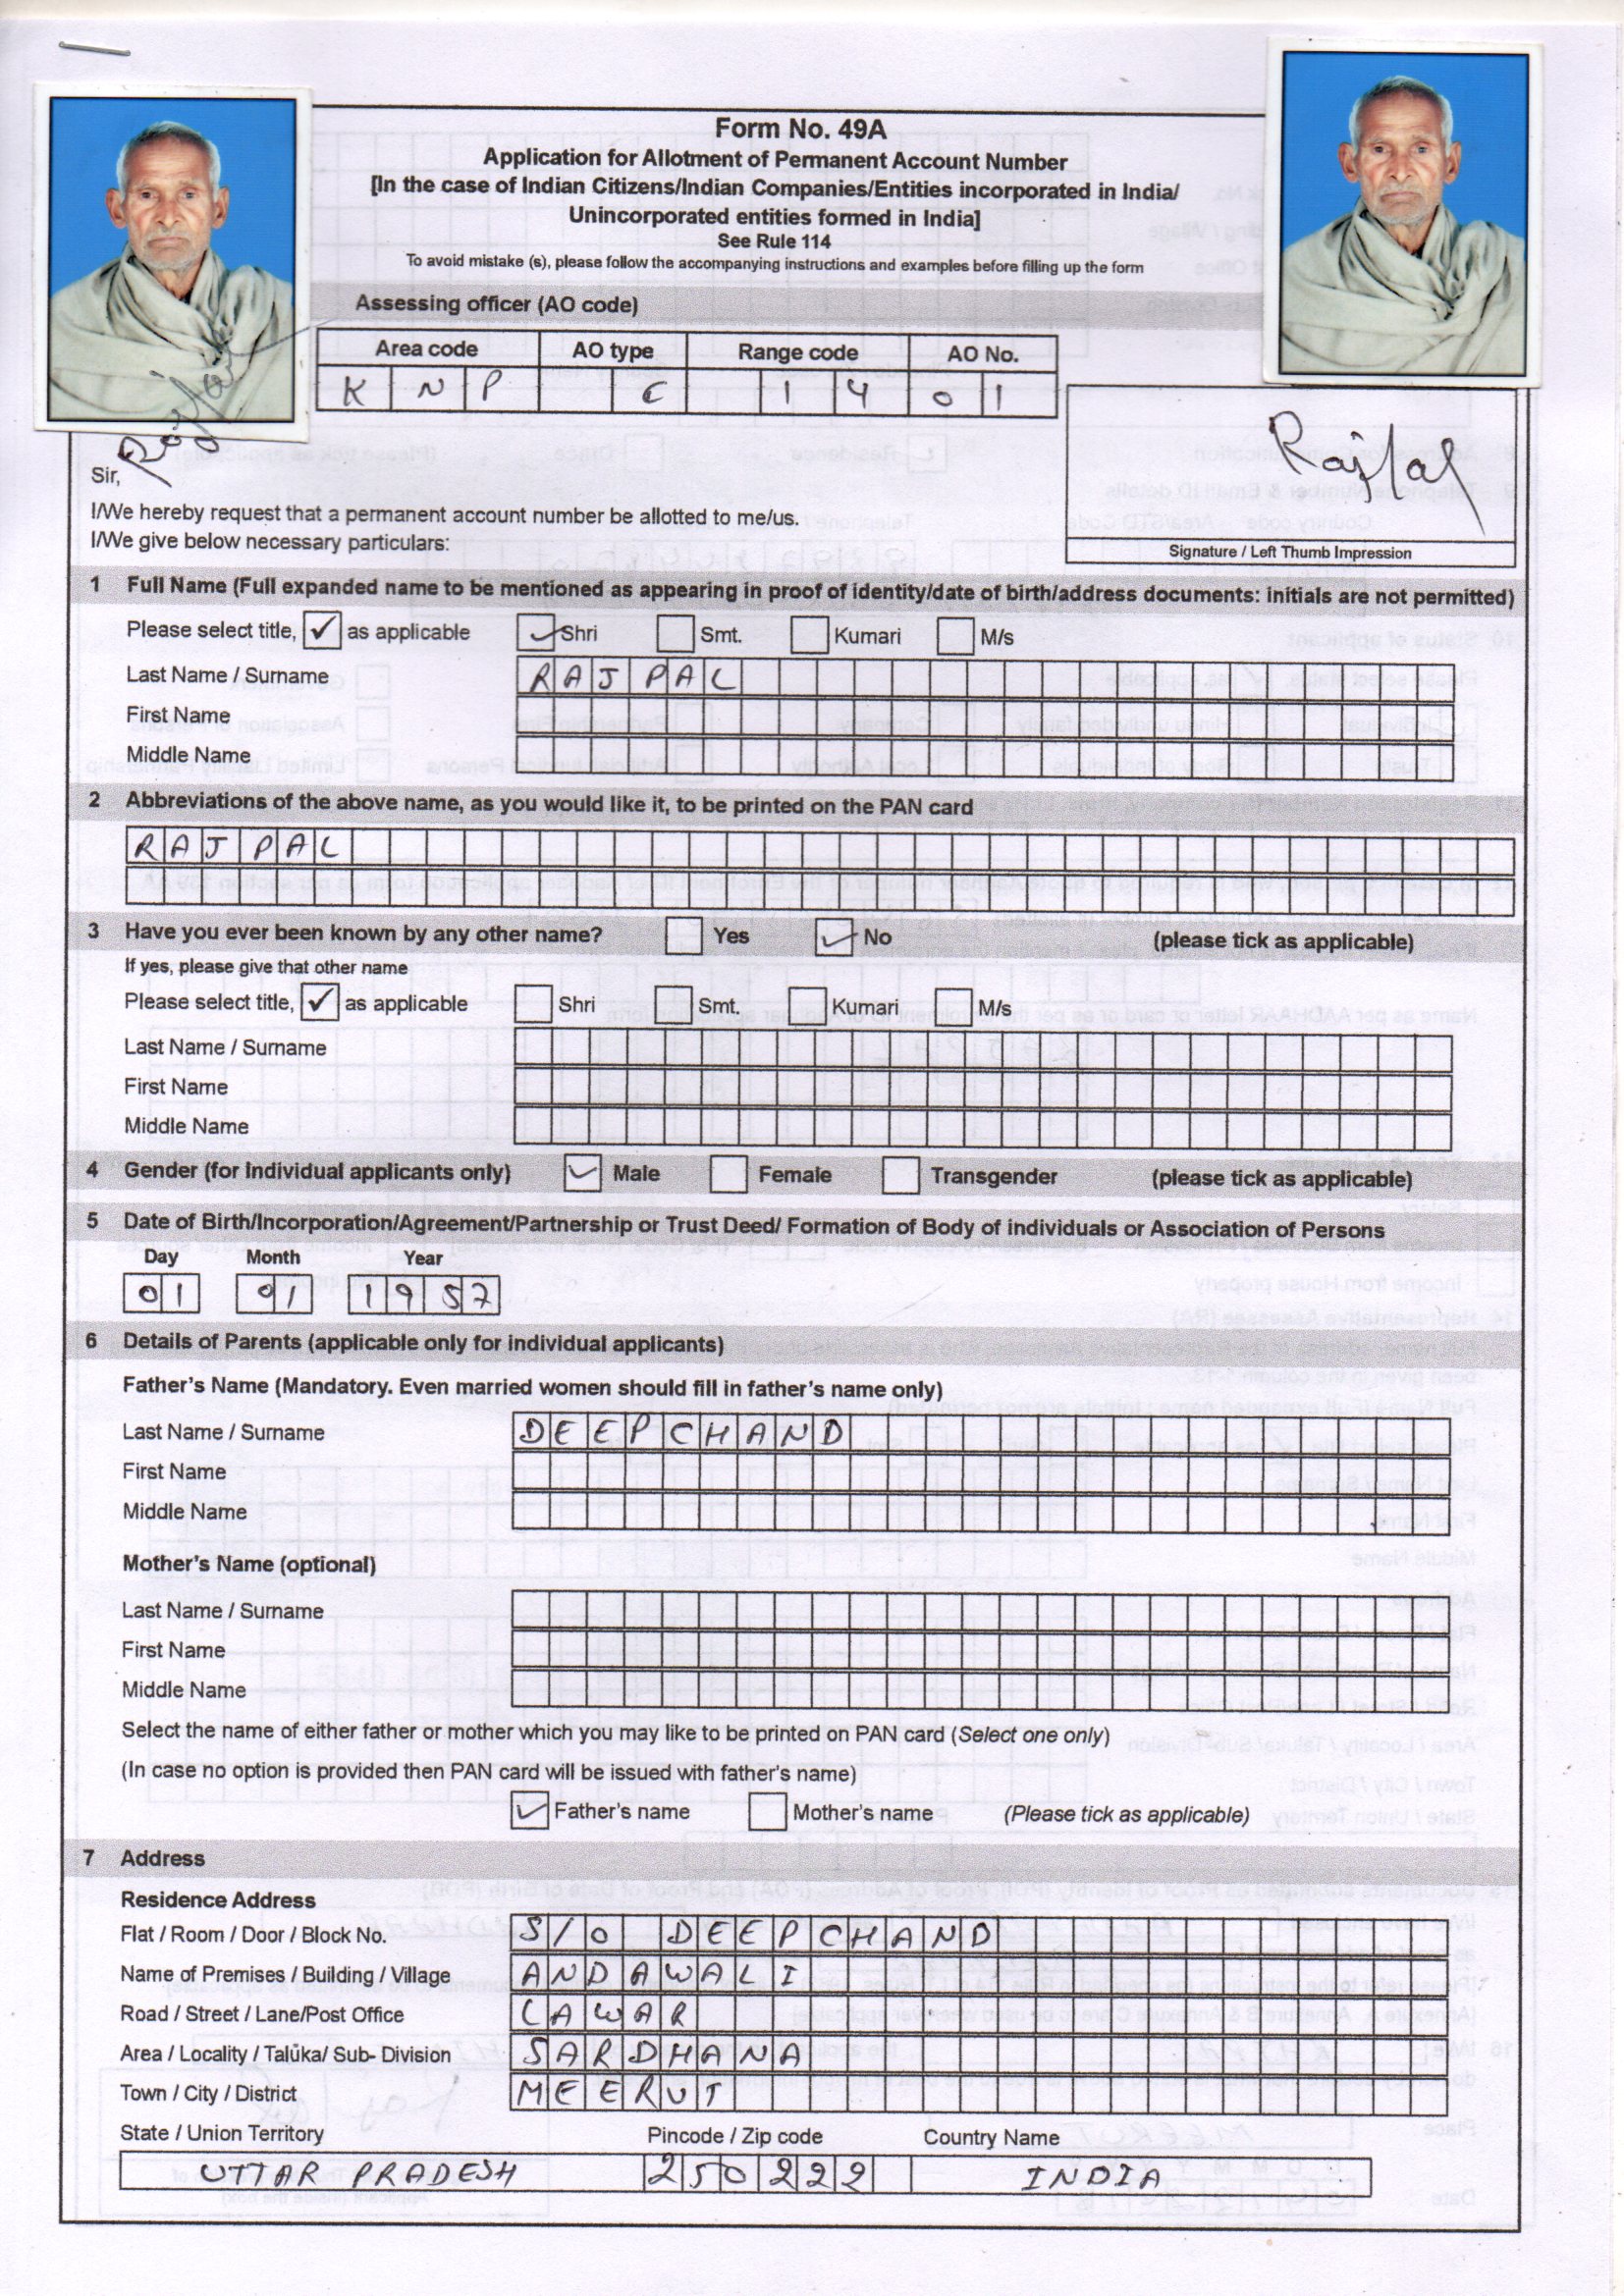 Form No. 49A
Application for Allotment of Permanent Account Number
[In the case of Indian Citizens/Indian Companies/Entities incorporated in India/
Unincorporated entities formed in India]
See Rule 114
To avoid mistake (s), please follow the accompanying instructions and examples before filling up the form
Assessing officer (AO code)
Area code AO type Range code AO No.
K N P C 1 4 0 1
Rajpal
Rajpal
Sir,
I/We hereby request that a permanent account number be allotted to me/us.
I/We give below necessary particulars:
Signature / Left Thumb Impression
1 Full Name (Full expanded name to be mentioned as appearing in proof of identity/date of birth/address documents: initials are not permitted)
Please select title, ✓ as applicable ✓ Shri Smt. Kumari M/s
Last Name / Surname RAJ PAL
First Name
Middle Name
2 Abbreviations of the above name, as you would like it, to be printed on the PAN card
RAJ PAL
3 Have you ever been known by any other name? Yes ✓ No (please tick as applicable)
If yes, please give that other name
Please select title, ✓ as applicable Shri Smt. Kumari M/s
Last Name / Surname
First Name
Middle Name
4 Gender (for Individual applicants only) ✓ Male Female Transgender (please tick as applicable)
5 Date of Birth/Incorporation/Agreement/Partnership or Trust Deed/ Formation of Body of individuals or Association of Persons
Day Month Year
01 01 1957
6 Details of Parents (applicable only for individual applicants)
Father's Name (Mandatory. Even married women should fill in father's name only)
Last Name / Surname DEEPCHAND
First Name
Middle Name
Mother's Name (optional)
Last Name / Surname
First Name
Middle Name
Select the name of either father or mother which you may like to be printed on PAN card (Select one only)
(In case no option is provided then PAN card will be issued with father's name)
✓ Father's name Mother's name (Please tick as applicable)
7 Address
Residence Address
Flat / Room / Door / Block No. S/O DEEPCHAND
Name of Premises / Building / Village ANDAWALI
Road / Street / Lane/Post Office LAWAR
Area / Locality / Taluka/ Sub- Division SARDHANA
Town / City / District MEERUT
State / Union Territory Pincode / Zip code Country Name
UTTAR PRADESH 250222 INDIA